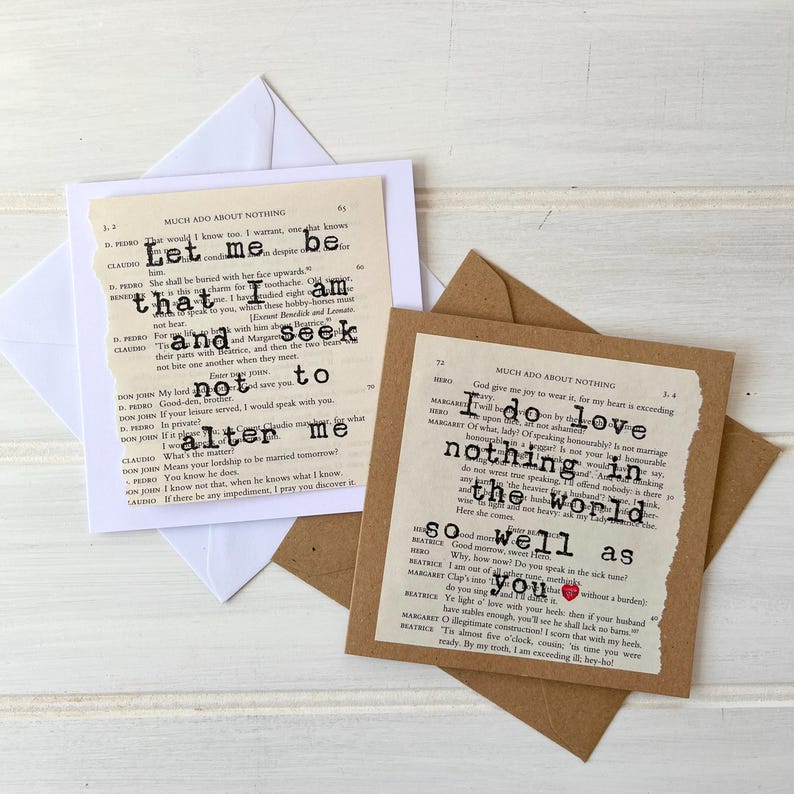 3, 2 MUCH ADO ABOUT NOTHING 65
Let me be
that I am
and seek
not to
alter me
D. PEDRO That would I know too. I warrant, one that knows
CLAUDIO in despite of for
him.
D. PEDRO She shall be buried with her face upwards.92
BENEDICK Yet is this no charm for the toothache. Old signior, 60
words to speak to you, which these hobby-horses must
not hear. [Exeunt Benedick and Leonato.
D. PEDRO For my life, to break with him about Beatrice.93
CLAUDIO 'Tis and Margaret
their parts with Beatrice, and then the two bears
not bite one another when they meet.
Enter DON JOHN.
DON JOHN My lord and brother, God save you. 70
D. PEDRO Good-den, brother.
DON JOHN If your leisure served, I would speak with you.
D. PEDRO In private?
DON JOHN If it please you; Count Claudio may hear, for what
I would
CLAUDIO What's the matter?
DON JOHN Means your lordship to be married tomorrow?
D. PEDRO You know he does.
DON JOHN I know not that, when he knows what I know.
CLAUDIO If there be any impediment, I pray you discover it.
72 MUCH ADO ABOUT NOTHING 3, 4
I do love
nothing in
the world
so well as
you
HERO God give me joy to wear it, for my heart is exceeding
heavy.
MARGARET 'Twill be by the weight
HERO Upon thee, art not ashamed?
MARGARET Of what, lady? Of speaking honourably? Is not marriage
honourable in a beggar? Is not your lord honourable
thinking
do not wrest true speaking, I'll offend nobody: is there
any 'the heavier for a husband'? None, I think, 30
husband
wise 'tis light and not heavy: ask my Lady Beatrice else.
Here she comes.
Enter BEATRICE.
HERO Good morrow, coz.
BEATRICE Good morrow, sweet Hero.
HERO Why, how now? Do you speak in the sick tune?
BEATRICE I am out of all other tune, methinks.
MARGARET Clap's into 'Light (that without a burden):
do you sing it, and I'll dance it.
BEATRICE Ye light o' love with your heels: then if your husband 40
have stables enough, you'll see he shall lack no barns.107
MARGARET O illegitimate construction! I scorn that with my heels.
BEATRICE 'Tis almost five o'clock, cousin; 'tis time you were
ready. By my troth, I am exceeding ill; hey-ho!